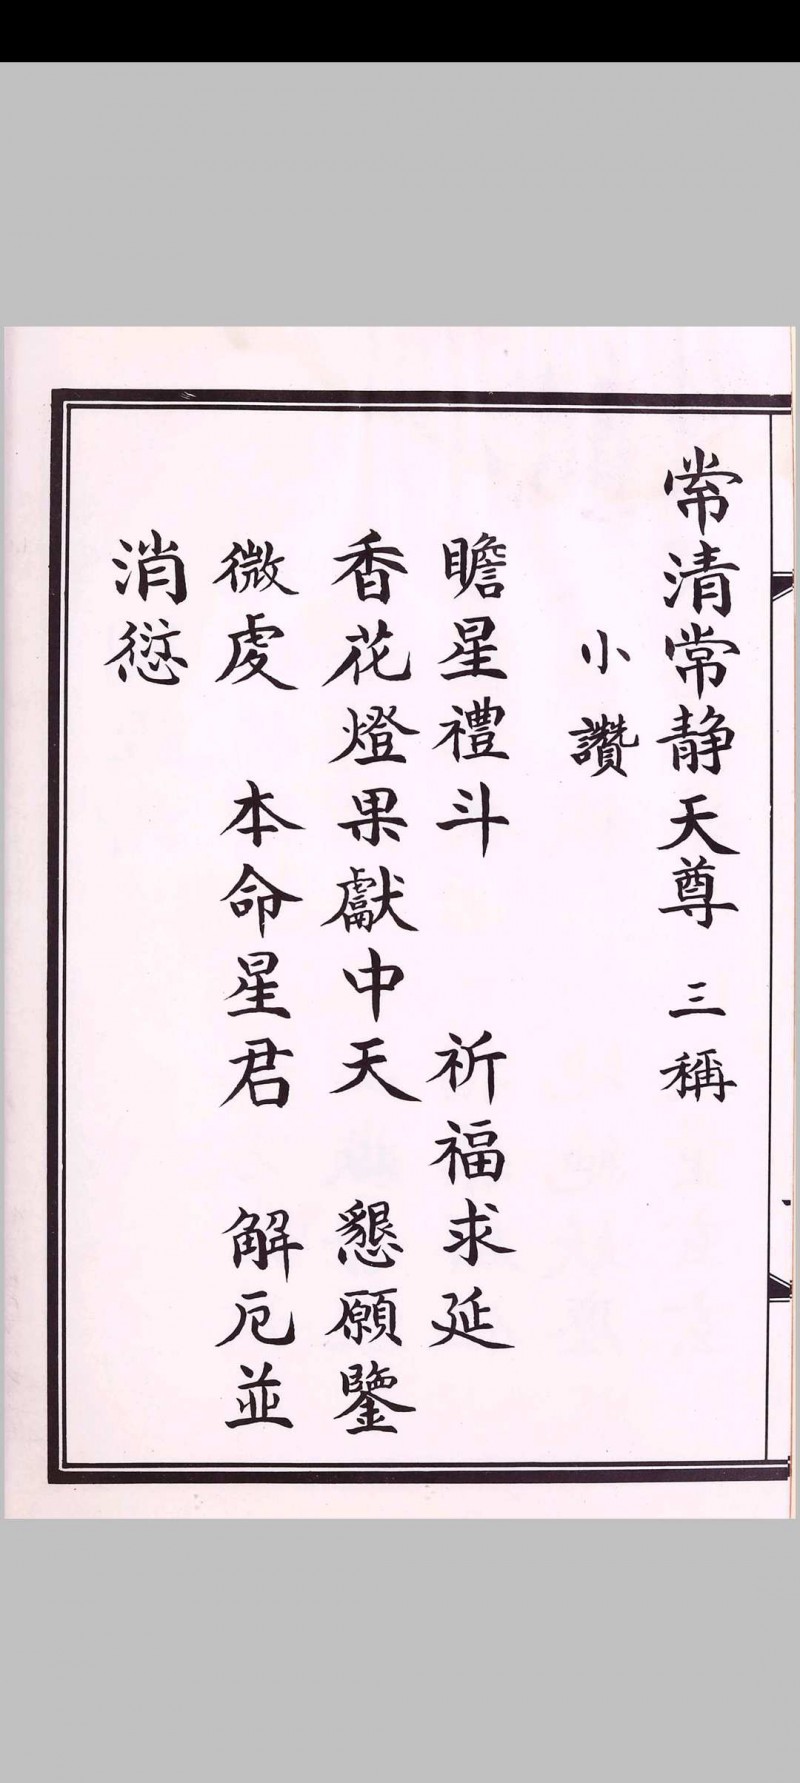 常清常静天尊 三稱
小讚
瞻星禮斗 祈福求延
香花燈果獻中天 懇願鑒
微虔 本命星君 解厄並
消愆